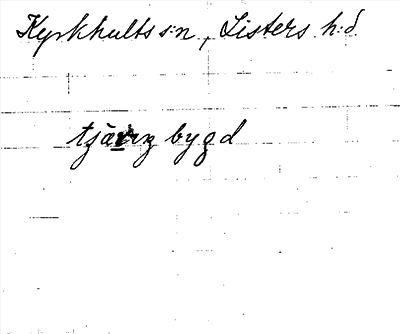 Kyrkhults s:n, Listers h:d
bygd